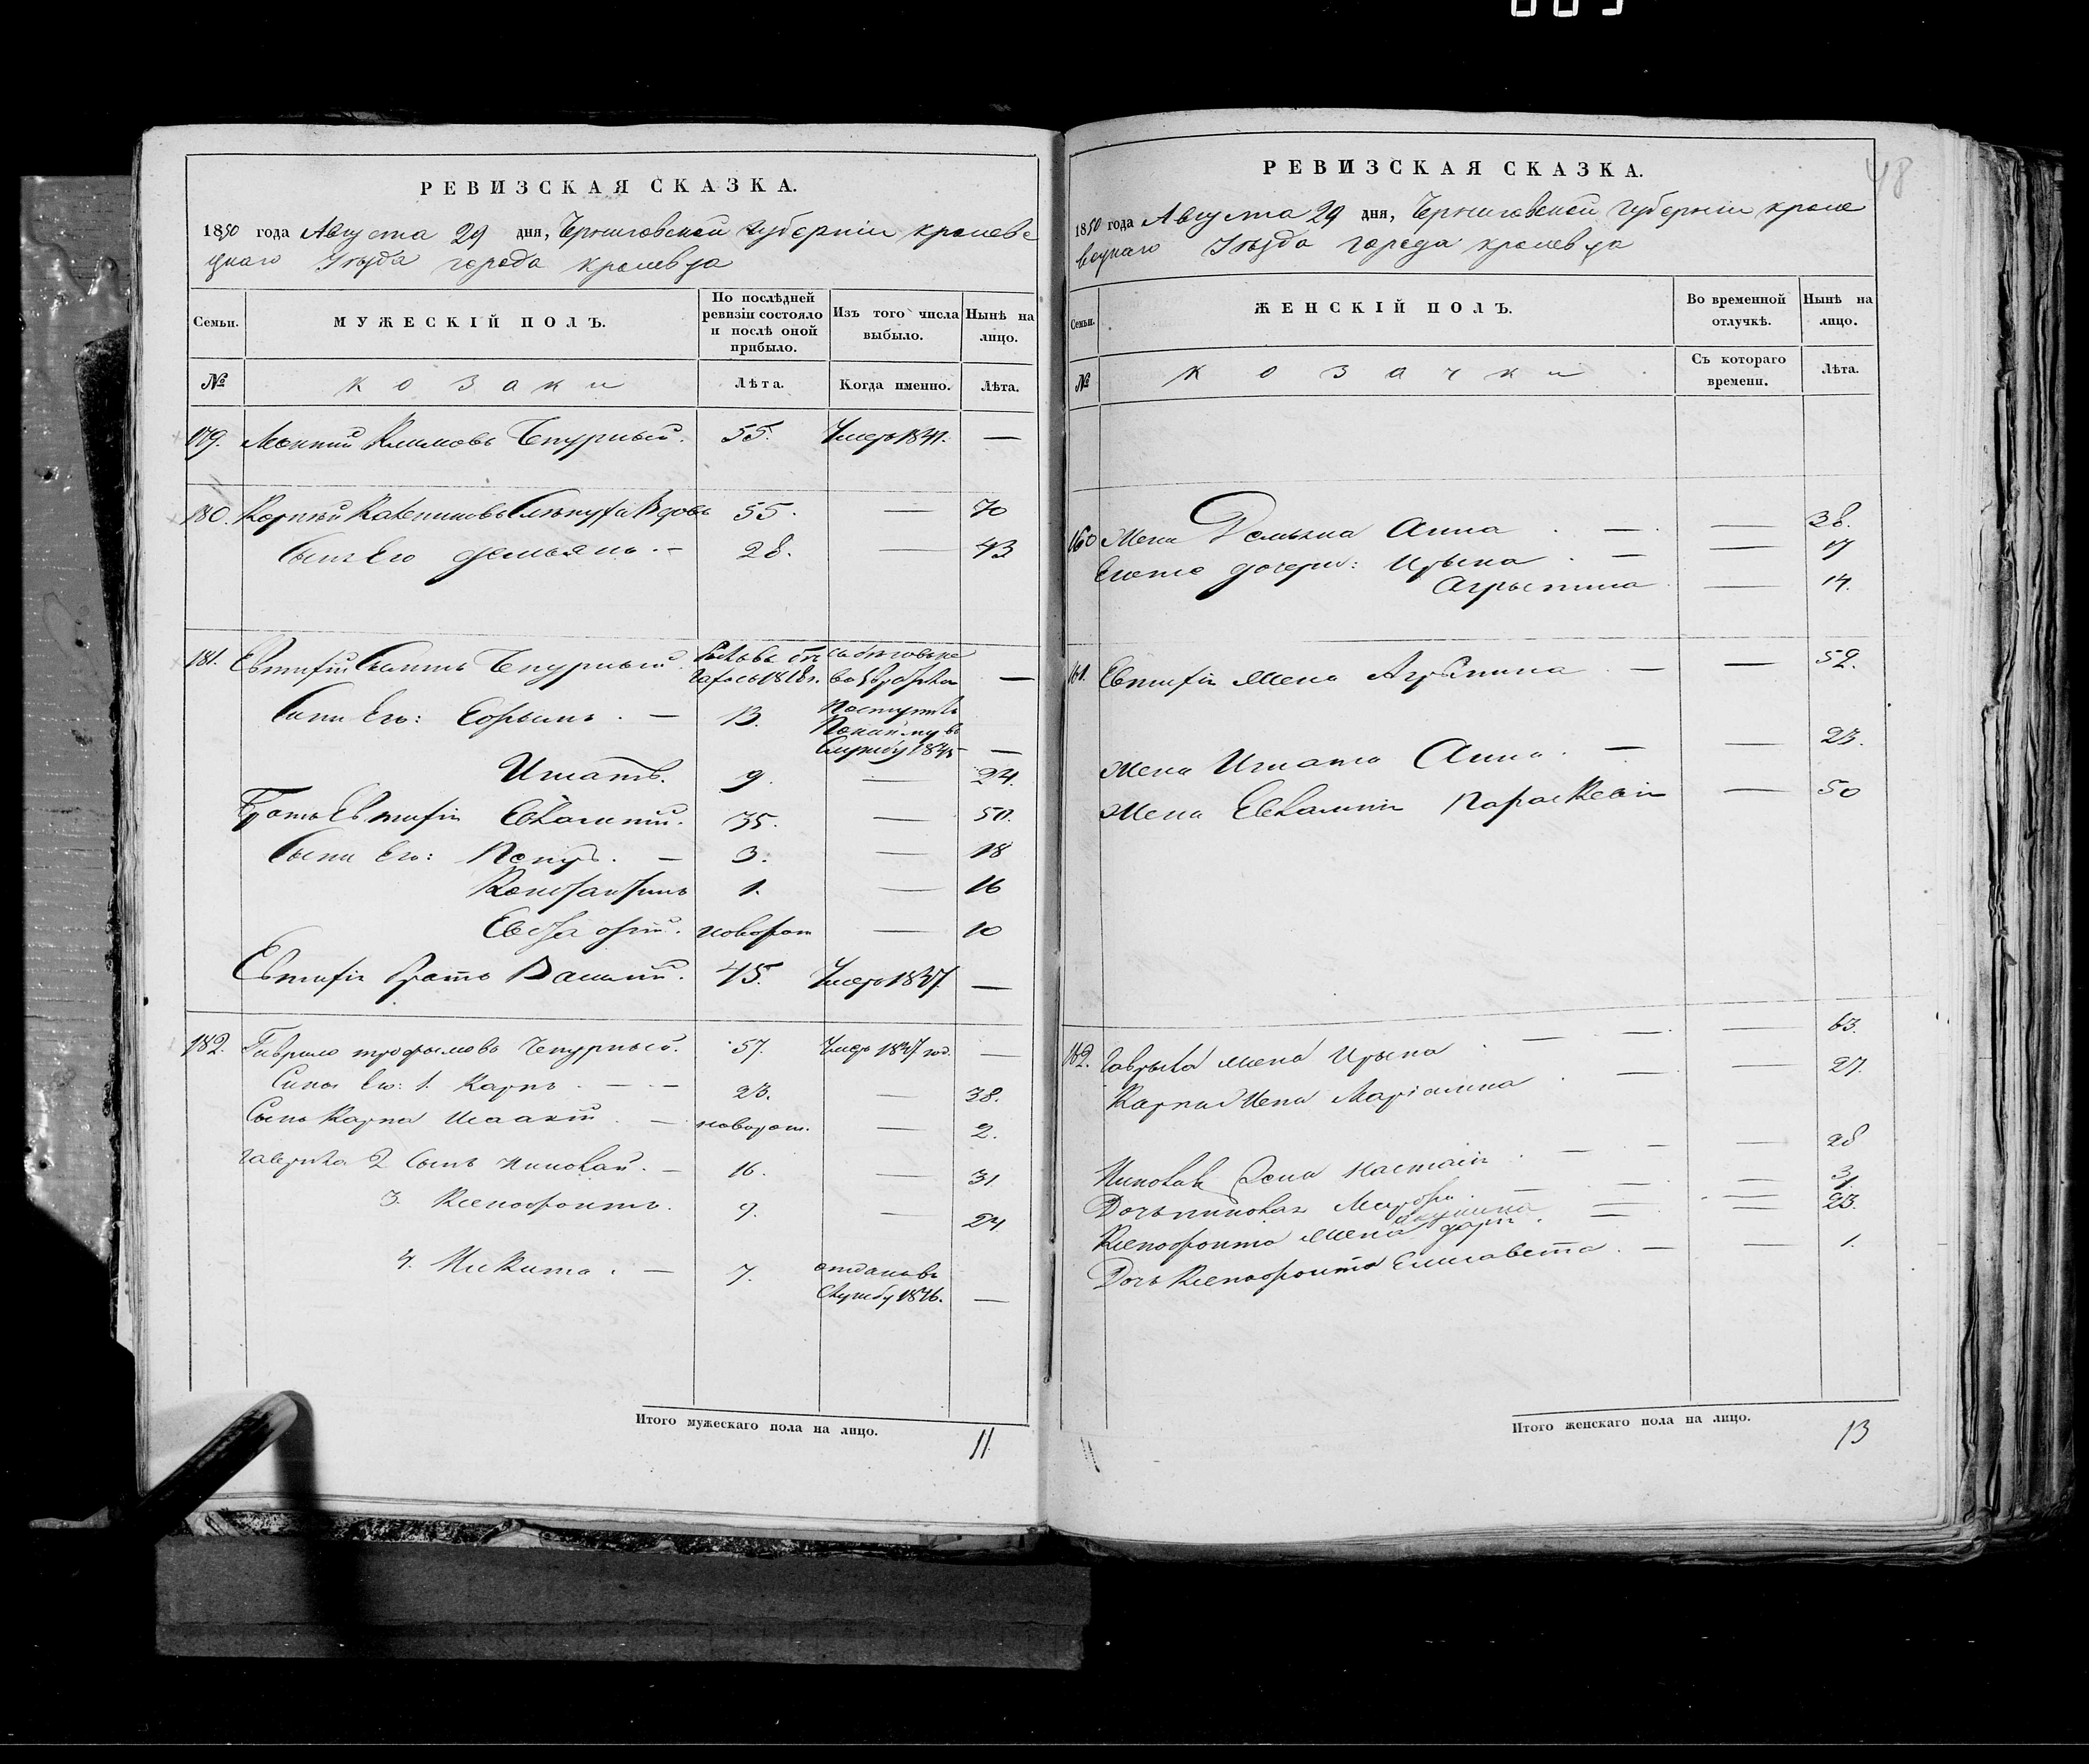 РЕВИЗСКАЯ СКАЗКА.
1850 года Августа 29 дня, Черниговской Губерніи кролеве
цкаго Уезда города кролевца
Семьи.
МУЖЕСКІЙ ПОЛЪ.
По послѣдней ревизіи состояло и послѣ оной прибыло.
Изъ того числа выбыло.
Нынѣ на лицо.
№
козаки
Лѣта.
Когда именно.
Лѣта.
179. Климовъ Чепурный. 55. Умеръ 1841. —
180. Корній Вдовъ 55. — 70
Сынъ Его Демьянъ. — 28. — 43
181. Евтифій Чепурный. —
Сыни Его: — 13. Поступилъ
Службу 1845 —
Игнатъ. 9. — 24.
Братъ Евтифія Евлампій. 35. — 50.
Сыни Его: — 3. — 18
Константинъ 1. — 16
Евстафій. новорож — 10
Евтифія братъ Василій. 45. Умеръ 1837. —
182. Гаврило трофимовъ Чепурный. 57. Умеръ 1847 год. —
Сины Его: 1. Карпъ. — 23. — 38.
Сынъ Карпа Исаакій. — новорож. — 2.
Гаврила 2 Сынъ Николай. — 16. — 31
3. Ксенофонтъ. 9. — 24
4. Микита. — 7. отданъ въ
Службу 1846. —
Итого мужескаго пола на лицо. 11
48
РЕВИЗСКАЯ СКАЗКА.
1850 года Августа 29 дня, Черниговской Губерніи кроле
вецкаго Уезда города кролевца
Семьи.
ЖЕНСКІЙ ПОЛЪ.
Во временной отлучкѣ.
Нынѣ на лицо.
№
козачки
Съ котораго времени.
Лѣта.
160 Жена Демьяна Анна — — 38.
дочери: Ирына — — 17
Агрыпина — 14.
161. Евтифія Жена Агрыпина — — 52.
Жена Игната Анна — — 23.
Жена Евлампія Параскевія — 50
162. Гаврыла жена Ирына — — 63.
Карпа Жена Маріанна — — 27.
Николая Жена Настасія — — 28
Дочь николая — — 3
Ксенофонта жена — — 23.
Дочь Ксенофонта Елисавета — — 1.
Итого женскаго пола на лицо. 13